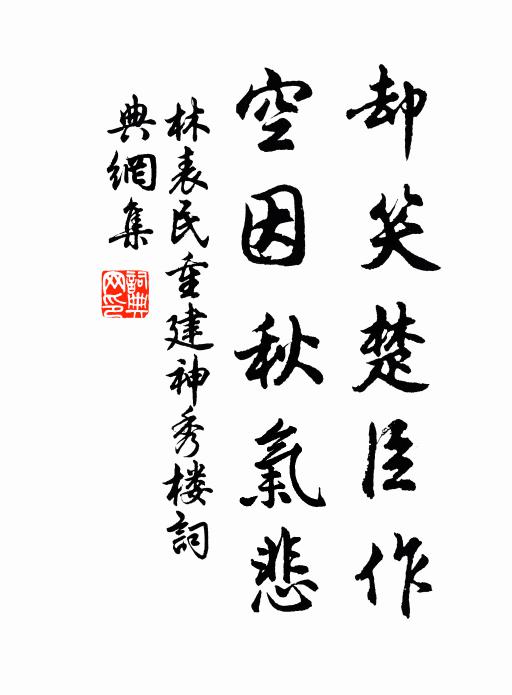 却笑楚臣作
空因秋氣悲
林表民重建神秀楼詞
典網集
詞典网印